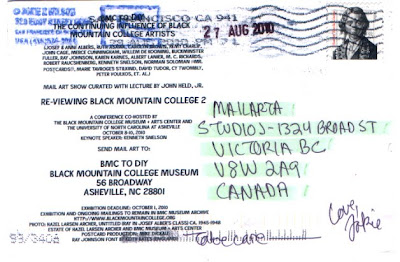 SAN FRANCISCO CA 941
27 AUG 2010
BMC TO DIY
THE CONTINUING INFLUENCE OF BLACK
MOUNTAIN COLLEGE ARTISTS
JOHN CAGE, MERCE CUNNINGHAM, WILLEM DE KOONING, BUCKMINSTER
FULLER, RAY JOHNSON, KAREN KARNES, ALBERT LANIER, M. C. RICHARDS,
ROBERT RAUSCHENBERG, KENNETH SNELSON, NORMAN SOLOMON
POSTCARDS!, MARIE TAVROGES STILKIND, DAVID TUDOR, CY TWOMBLY,
PETER VOULKOS, ET. AL.)
MAIL ART SHOW CURATED WITH LECTURE BY JOHN HELD, JR.
RE-VIEWING BLACK MOUNTAIN COLLEGE 2
A CONFERENCE CO-HOSTED BY
THE BLACK MOUNTAIN COLLEGE MUSEUM + ARTS CENTER AND
THE UNIVERSITY OF NORTH CAROLINA AT ASHEVILLE
OCTOBER 8-10, 2010
KEYNOTE SPEAKER: KENNETH SNELSON
SEND MAIL ART TO:
BMC TO DIY
BLACK MOUNTAIN COLLEGE MUSEUM
56 BROADWAY
ASHEVILLE, NC 28801
EXHIBITION DEADLINE: OCTOBER 1, 2010
EXHIBITION AND ONGOING MAILINGS TO REMAIN IN BMC MUSEUM ARCHIVE
HTTP://WWW.BLACKMOUNTAINCOLLEGE.ORG
PHOTO: HAZEL LARSEN ARCHER, UNTITLED (RAY IN JOSEF ALBERS'S CLASS) CA. 1945-1948
ESTATE OF HAZEL LARSEN ARCHER AND BMC MUSEUM + ARTS CENTER
POSTCARD PRODUCTION: MIKE DICKAU
RAY JOHNSON FONT
MAILARTA
STUDIOJ-1324 BROAD ST
VICTORIA BC
V8W 2A9
CANADA
Love,
Jokie
Take care